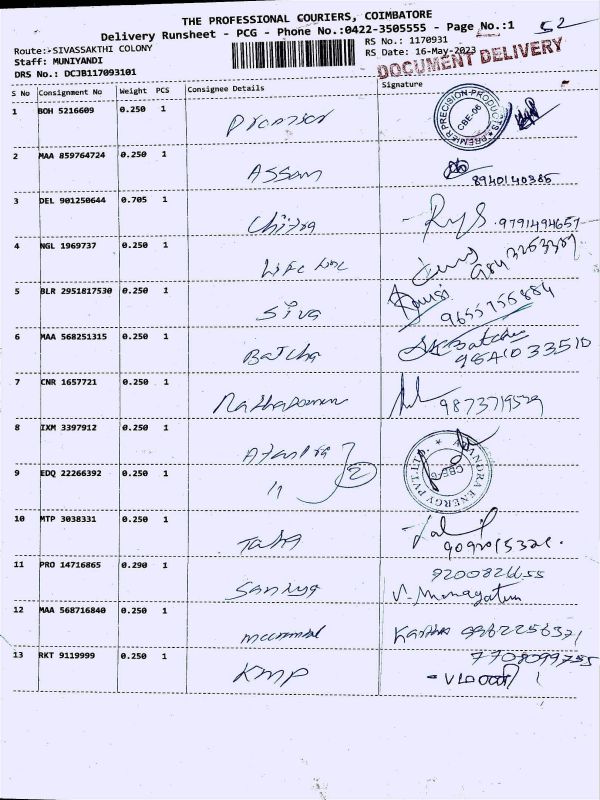 THE PROFESSIONAL COURIERS, COIMBATORE
Delivery Runsheet - PCG - Phone No.:0422-3505555 - Page No.:1 52
Route:-SIVASSAKTHI COLONY RS No.: 1170931
Staff: MUNIYANDI RS Date: 16-May-2023
DRS No.: DCJB117093101 DOCUMENT DELIVERY
S No Consignment No Weight PCS Consignee Details Signature
1 BOH 5216609 0.250 1 PREMIER PRECISION PRODUCTS CBE-06
2 MAA 859764724 0.250 1 Assam 8940140385
3 DEL 901250644 0.705 1 Chitra 9791494657
4 NGL 1969737 0.250 1
5 BLR 2951817530 0.250 1 Siva 9655755884
6 MAA 568251315 0.250 1 Batcha SK Batcha 9541033510
7 CNR 1657721 0.250 1 9873719529
8 IXM 3397912 0.250 1 ENERGY PVT.LTD. CBE-G
9 EDQ 22266392 0.250 1 11 2
10 MTP 3038331 0.250 1
11 PRO 14716865 0.290 1 Sanjiya 9200821655
12 MAA 568716840 0.250 1
13 RKT 9119999 0.250 1 KMP 7708099755